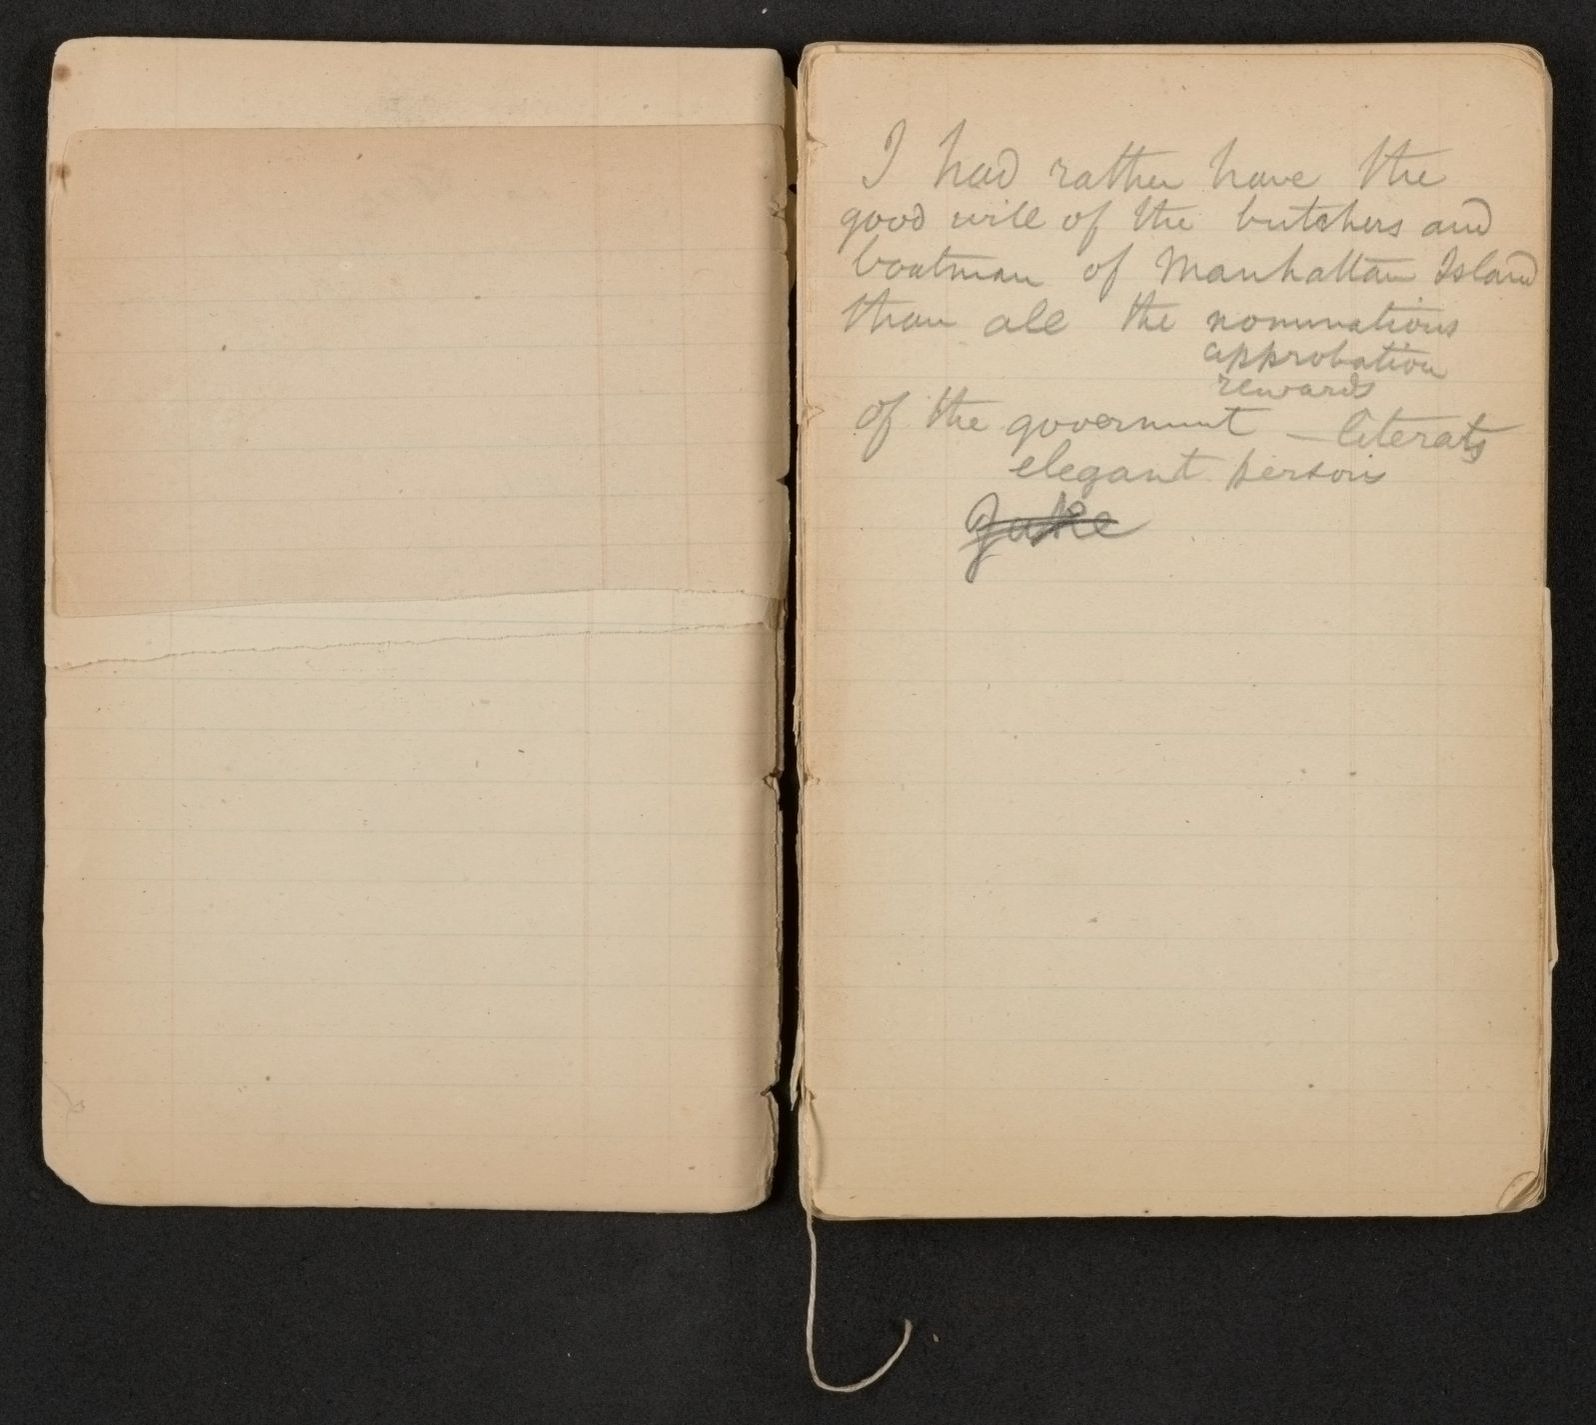 I had rather have the
good will of the butchers and
boatman of Manhattan Island
than all the nominations
approbation
rewards
of the government — literats
elegant persons